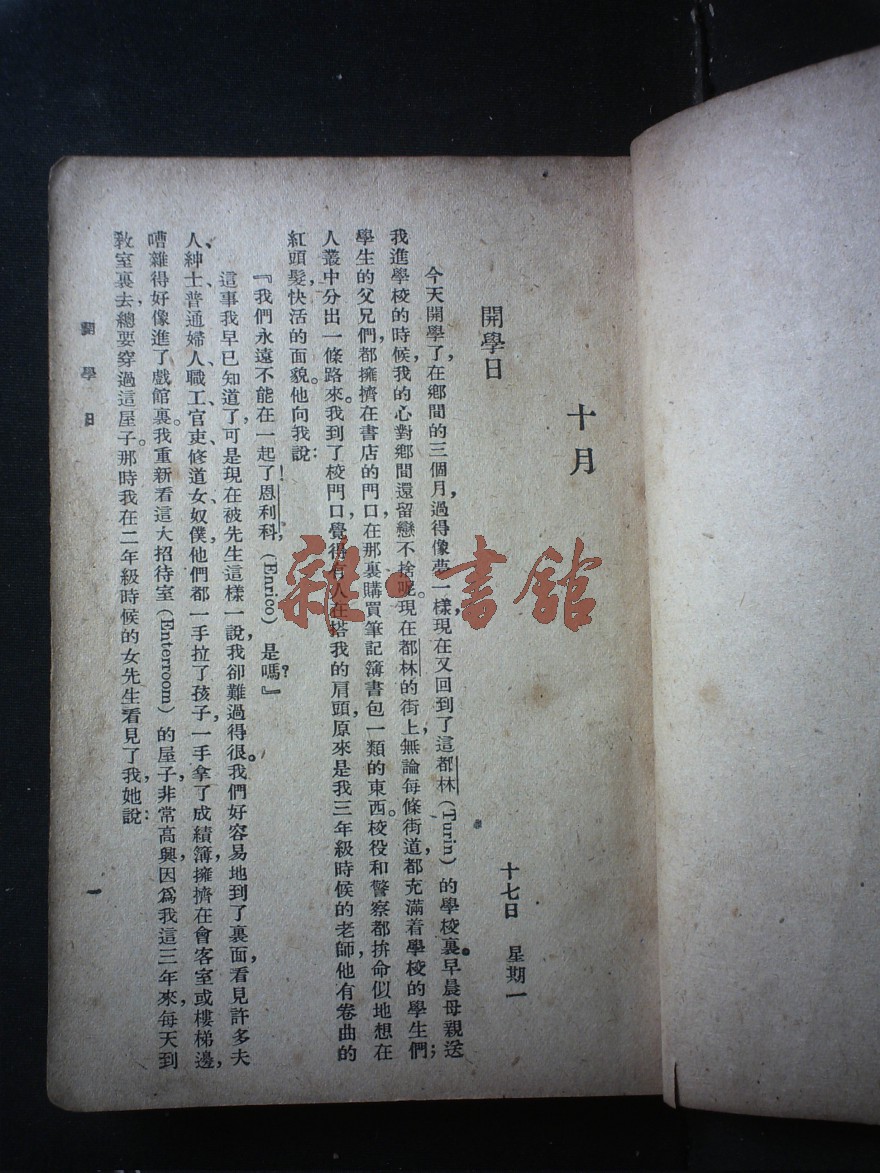 十月
開學日
十七日 星期一
今天開學了，在鄉間的三個月，過得像夢一樣，現在又回到了這都林(Turin)的學校裏。早晨母親送
我進學校的時候，我的心對鄉間還留戀不捨呢。現在都林的街上，無論每條街道，都充滿着學校的學生們；
學生的父兄們，都擁擠在書店的門口，在那裏購買筆記簿書包一類的東西。校役和警察都拚命似地想在
人叢中分出一條路來。我到了校門口，覺得有人在搭我的肩頭，原來是我三年級時候的老師，他有卷曲的
紅頭髮，快活的面貌。他向我說：
『我們永遠不能在一起了！恩利科，(Enrico) 是嗎？』
這事我早已知道了，可是現在被先生這樣一說，我卻難過得很。我們好容易地到了裏面，看見許多夫
人、紳士、普通婦人、職工、官吏、修道女、奴僕，他們都一手拉了孩子，一手拿了成績簿，擁擠在會客室或樓梯邊，
嘈雜得好像進了戲館裏。我重新看這大招待室(Enterroom)的屋子，非常高興，因爲我這三年來，每天到
教室裏去，總要穿過這屋子。那時我在二年級時候的女先生看見了我，她說：
開學日
一
雜·書館